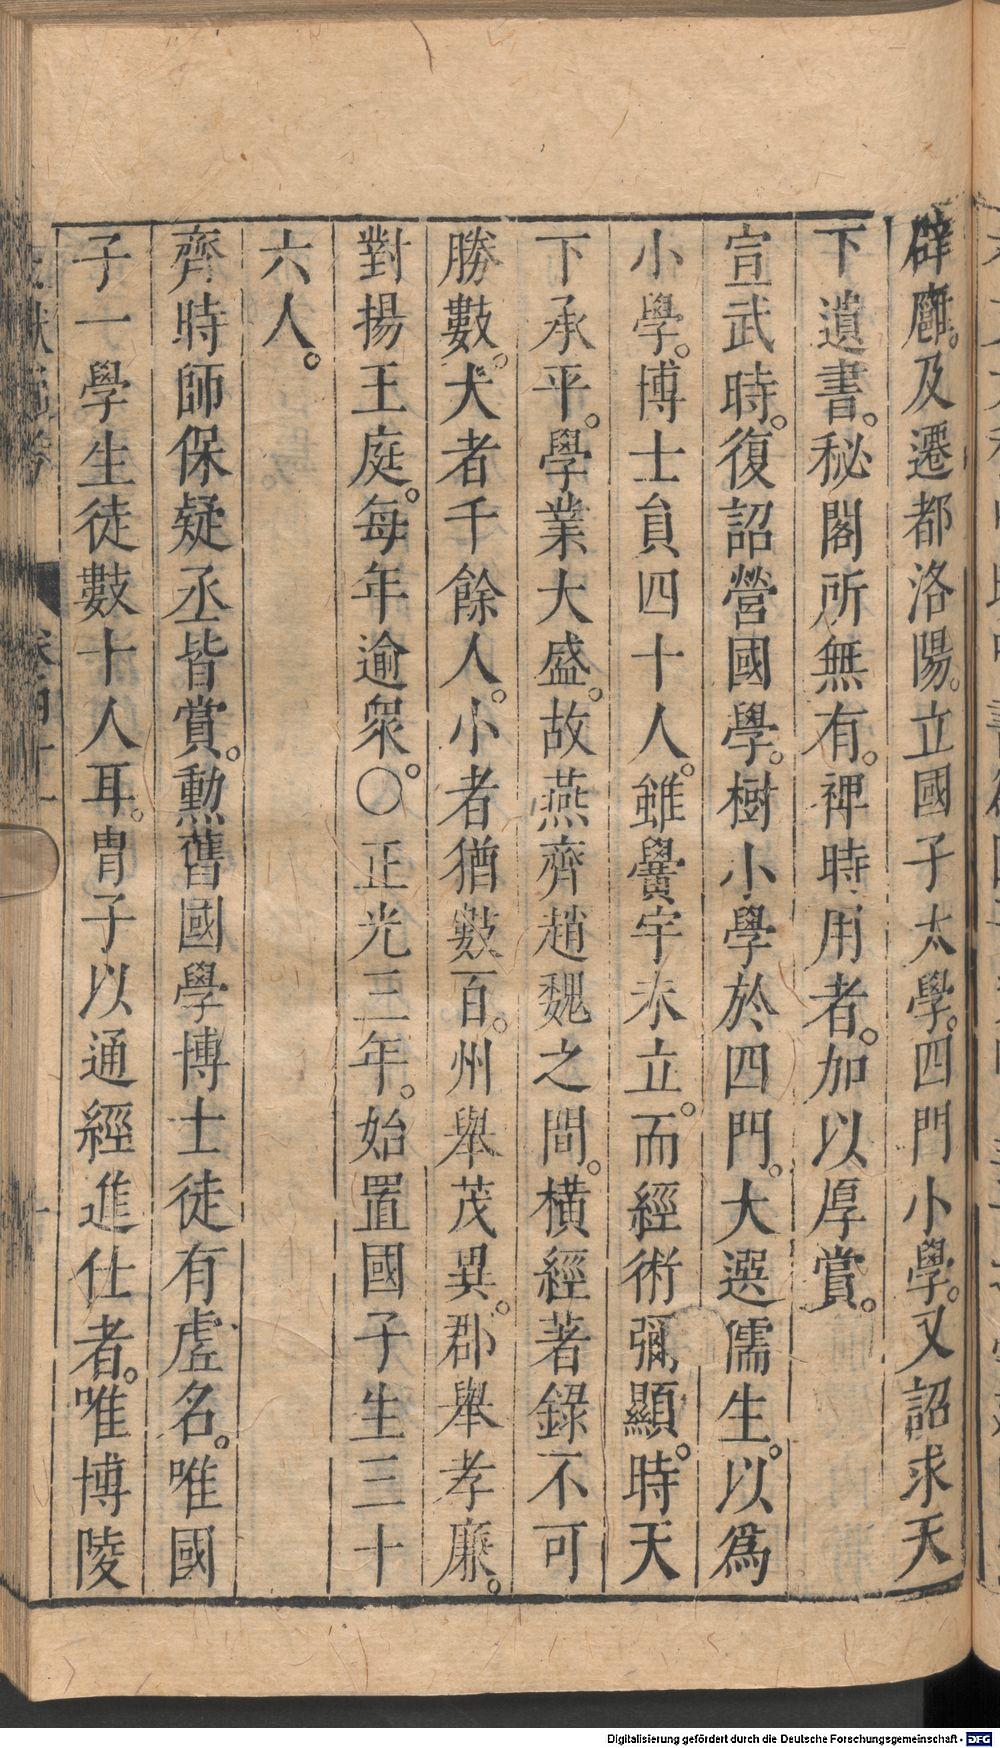 辟廱。及遷都洛陽。立國子太學。四門小學。又詔求天
下遺書。秘閣所無有。裨時用者。加以厚賞。
宣武時。復詔營國學。樹小學於四門。大選儒生。以爲
小學。博士員四十人。雖黌宇未立。而經術彌顯。時天
下承平。學業大盛。故燕齊趙魏之間。橫經著錄不可
勝數。大者千餘人。小者猶數百。州舉茂異。郡舉孝廉。
對揚王庭。每年逾衆。○正光三年。始置國子生三十
六人。
齊時師保疑丞皆賞。勳舊國學博士徒有虛名。唯國
子一學生徒數十人耳。冑子以通經進仕者。唯博陵
Digitalisierung gefördert durch die Deutsche Forschungsgemeinschaft - DFG